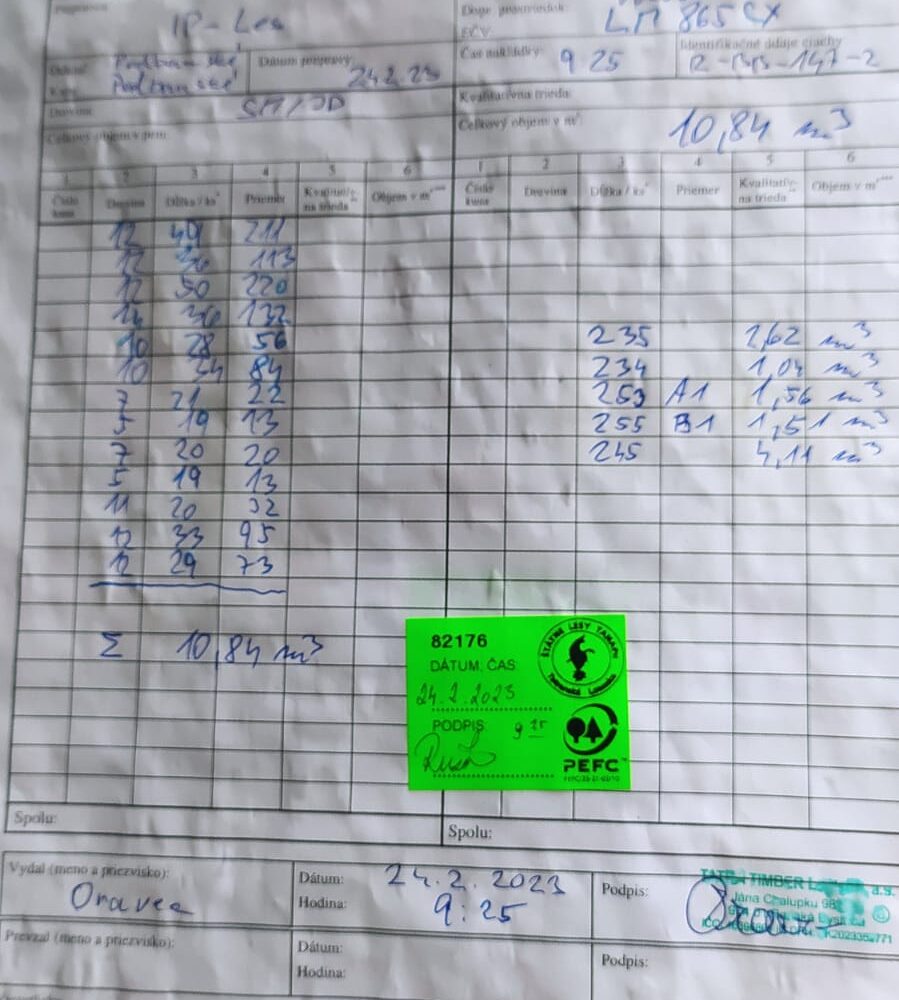 IP-Les
EČV: LM 865 CX
Dátum prepravy: 24.2.23
Čas nakládky: 9 25
Identifikačné údaje ciachy
Podbanské
Podbanské
Drevina: SM/JD
Kvalitatívna trieda:
Celkový objem v m³: 10,84 m³
1 2 3 4 5 6 1 2 3 4 5 6
Číslo kusu Drevina Dĺžka / ks* Priemer Kvalitatív- na trieda Objem v m³*** Číslo kusu Drevina Dĺžka / ks* Priemer Kvalitatív- na trieda Objem v m³***
12 211
12 113
12 50 220
132
10 28 56 235 2,62 m³
10 34 84 234 1,04 m³
7 21 22 253 A1 1,56 m³
5 19 13 255 B1 1,51 m³
7 20 20 245 4,11 m³
5 19 13
11 20 32
12 33 95
12 29 73
Σ 10,84 m³
82176
DÁTUM, ČAS
24.2.2023
PODPIS 9 25
ŠTÁTNE LESY TANAPU
Tatranská Lomnica
PEFC
Spolu: Spolu:
Vydal (meno a priezvisko): Oravec
Dátum: 24.2.2023
Hodina: 9:25
Podpis:
TATRA TIMBER
Jána Chalupku
Prevzal (meno a priezvisko):
Dátum:
Hodina:
Podpis: